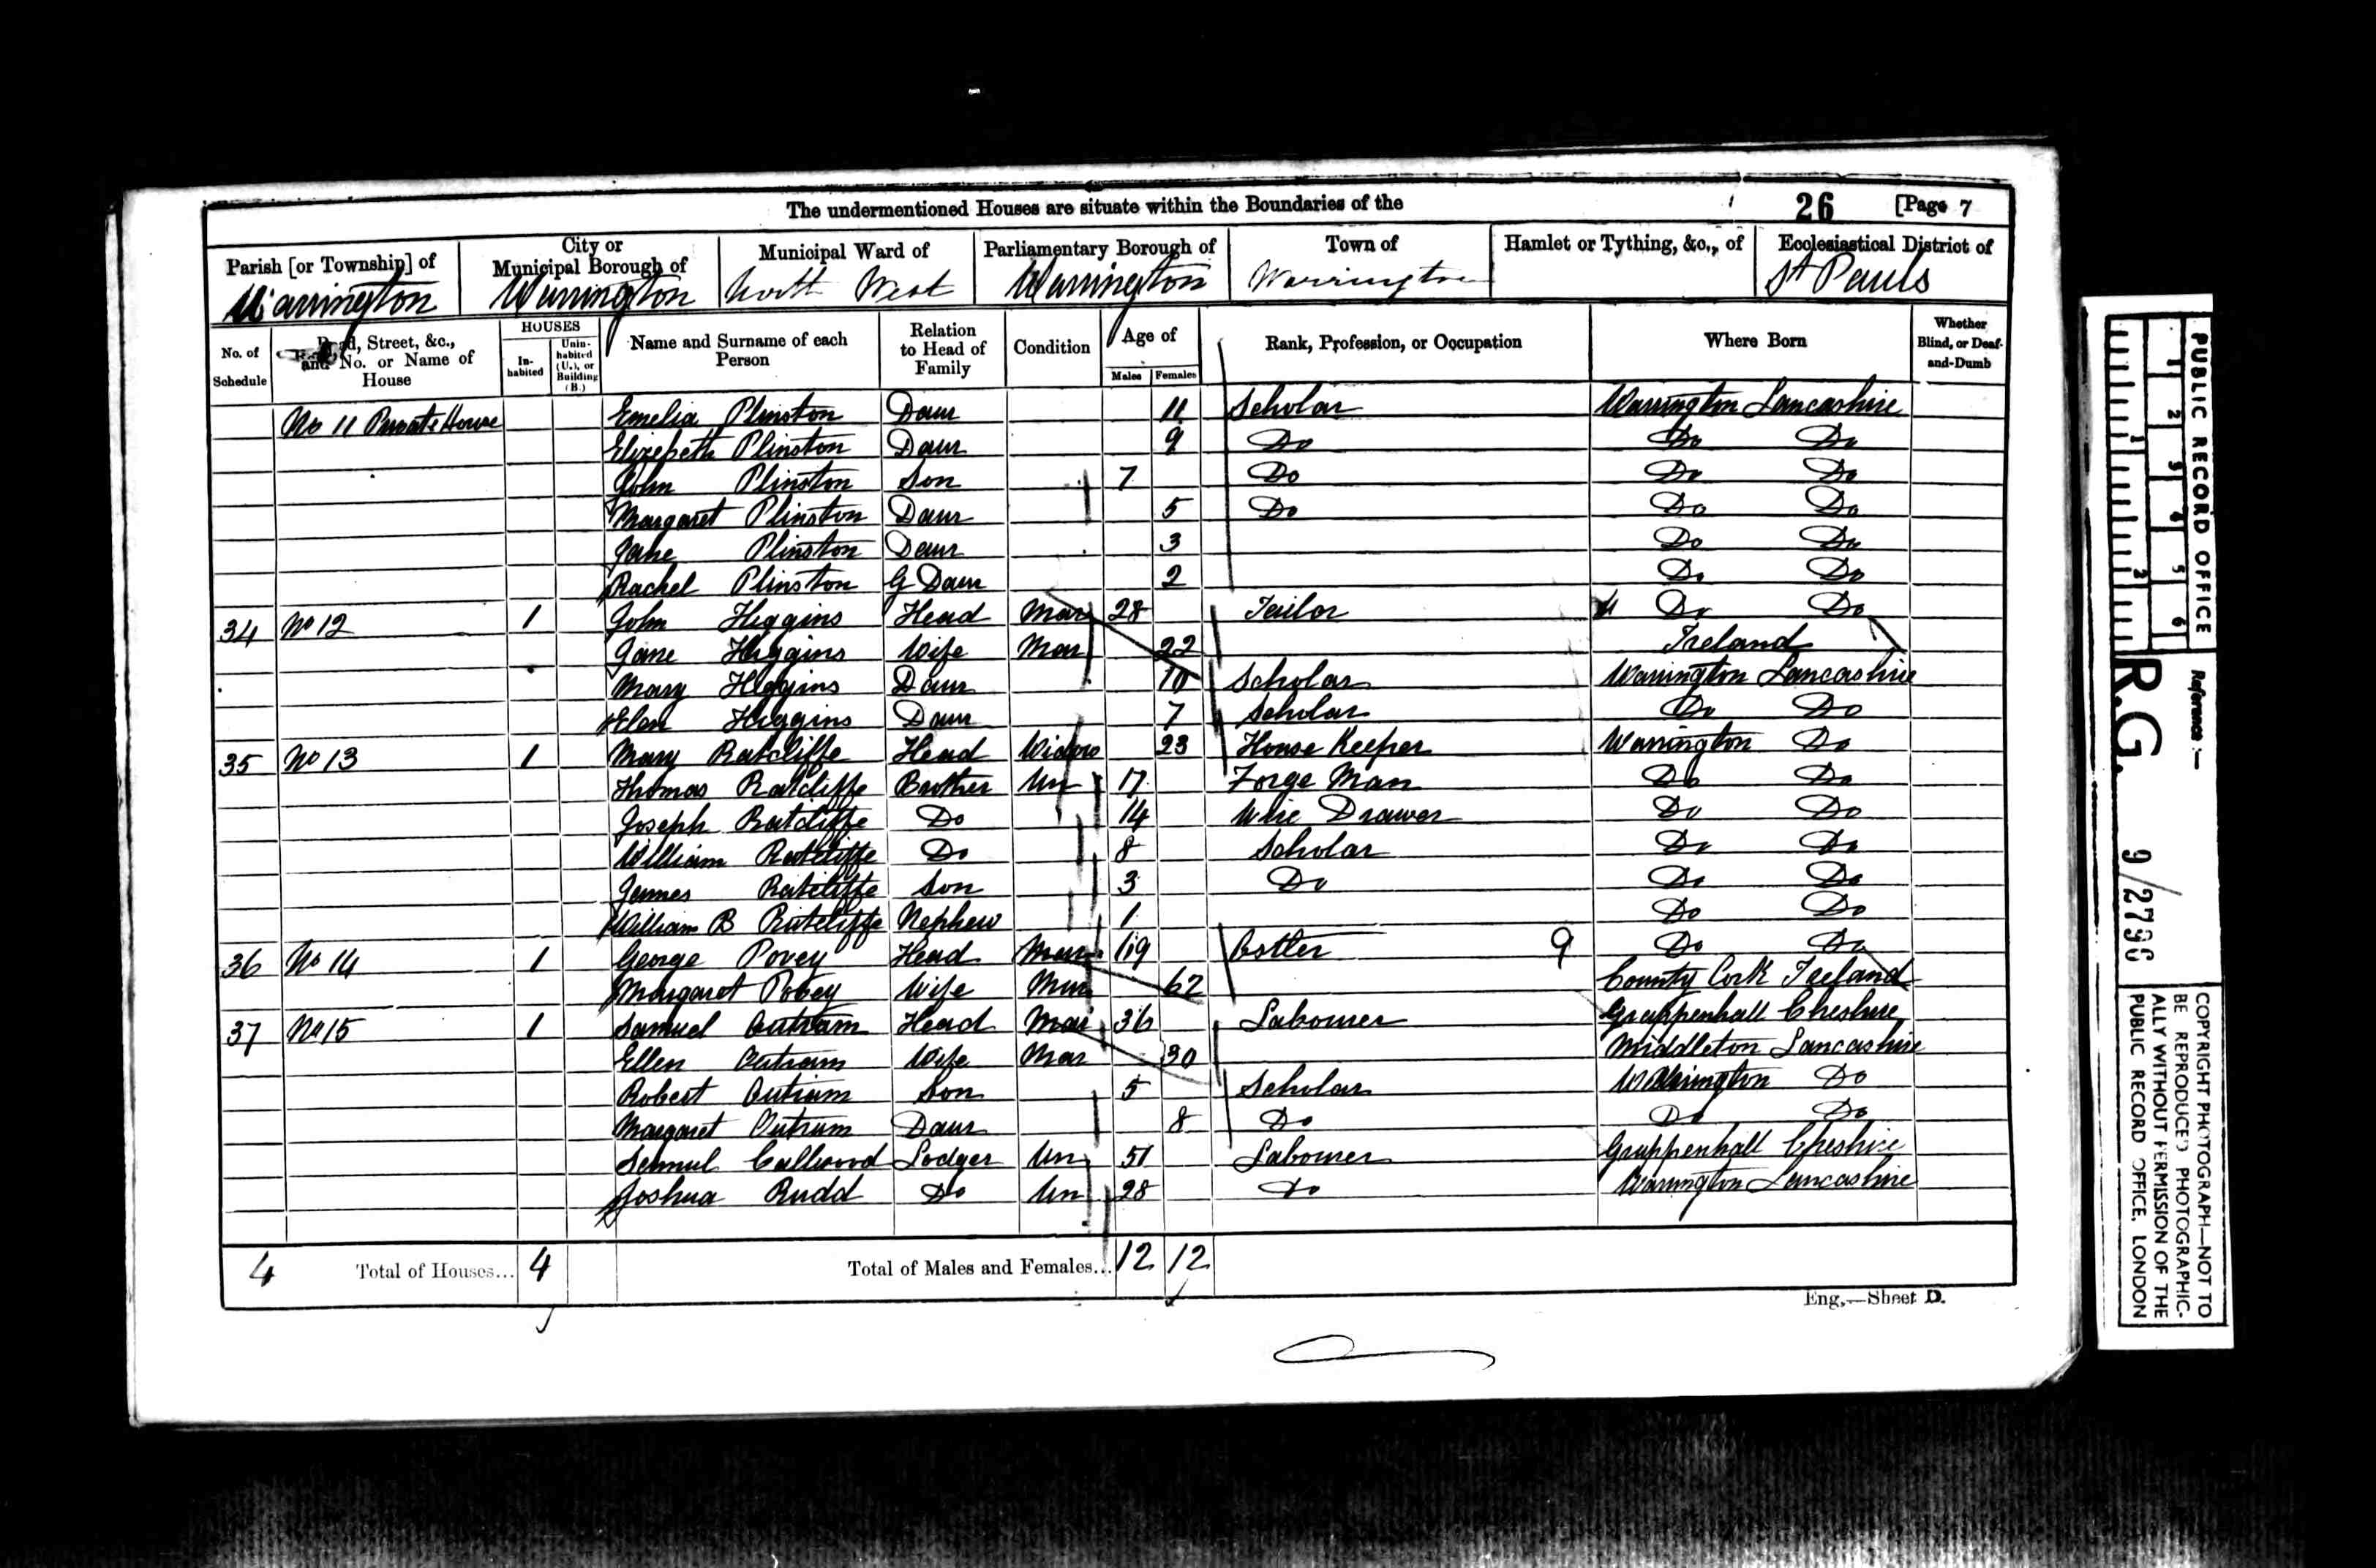 The undermentioned Houses are situate within the Boundaries of the 26 [Page 7
Parish [or Township] of City or Municipal Borough of Municipal Ward of Parliamentary Borough of Town of Hamlet or Tything, &c., of Ecclesiastical District of
Warrington Warrington North West Warrington Warrington St Pauls
No. of Schedule Road, Street, &c., and No. or Name of House HOUSES In-habited Unin-habited (U.), or Building (B.) Name and Surname of each Person Relation to Head of Family Condition Age of Males Females Rank, Profession, or Occupation Where Born Whether Blind, or Deaf-and-Dumb
No 11 Private House Emelia Plinston Daur 11 Scholar Warrington Lancashire
Elizepeth Plinston Daur 9 Do Do Do
John Plinston Son 7 Do Do Do
Margaret Plinston Daur 5 Do Do Do
Jane Plinston Daur 3 Do Do
Rachel Plinston G Daur 2 Do Do
34 No 12 1 John Higgins Head Mar 28 Tailor Do Do
Jane Higgins Wife Mar 22 Ireland
Mary Higgins Daur 10 Scholar Warrington Lancashire
Elen Higgins Daur 7 Scholar Do Do
35 No 13 1 Mary Ratcliffe Head Widow 23 House Keeper Warrington Do
Thomas Ratcliffe Brother Un 17 Forge Man Do Do
Joseph Ratcliffe Do 14 Wire Drawer Do Do
William Ratcliffe Do 8 Scholar Do Do
James Ratcliffe Son 3 Do Do Do
William B Ratcliffe Nephew 1 Do Do
36 No 14 1 George Povey Head Mar 19 Ostler 9 Do Do
Margaret Povey Wife Mar 62 County Cork Ireland
37 No 15 1 Samuel Outram Head Mar 36 Labourer Grappenhall Cheshire
Ellen Outram Wife Mar 30 Middleton Lancashire
Robert Outram Son 5 Scholar Warrington Do
Margaret Outram Daur 8 Do Do Do
Samuel Lodger Un 51 Labourer Grappenhall Cheshire
Joshua Rudd Do Un 28 Do Warrington Lancashire
4 Total of Houses... 4 Total of Males and Females... 12 12
Eng.—Sheet D.
PUBLIC RECORD OFFICE
1 2 3 4 5 6
1 2
Reference :—
R.G. 9/2796
COPYRIGHT PHOTOGRAPH—NOT TO
BE REPRODUCED PHOTOGRAPHIC-
ALLY WITHOUT PERMISSION OF THE
PUBLIC RECORD OFFICE, LONDON